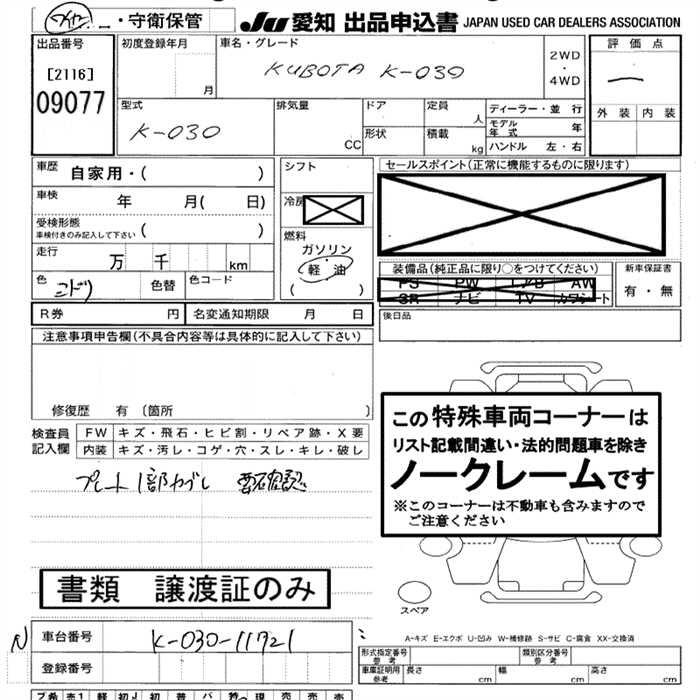 ・守衛保管 JU 愛知 出品申込書 JAPAN USED CAR DEALERS ASSOCIATION
出品番号
[2116]
09077
初度登録年月
月
車名・グレード
KUBOTA K-030
2WD
・
4WD
評価点
一
外装 内装
型式
K-030
排気量
CC
ドア
形状
定員
人
積載
kg
ディーラー・並行
モデル年式 年
ハンドル 左・右
車歴 自家用・( )
車検 年 月( 日)
受検形態
車検付きのみ記入して下さい ( )
走行 万 千 km
色 ミドリ 色替 色コード
シフト
冷房
燃料
ガソリン
軽油
( )
セールスポイント(正常に機能するものに限ります)
装備品(純正品に限り○をつけてください)
PS PW エアB AW
SR ナビ TV カワシート
新車保証書
有・無
後日品
R券 円 名変通知期限 月 日
注意事項申告欄(不具合内容等は具体的に記入して下さい)
修復歴 有 (箇所 )
検査員
記入欄
FW キズ・飛石・ヒビ割・リペア跡・X要
内装 キズ・汚レ・コゲ・穴・スレ・キレ・破レ
プレート1部わずし 要確認
この特殊車両コーナーは
リスト記載間違い・法的問題車を除き
ノークレームです
※このコーナーは不動車も含みますので
ご注意ください
書類 譲渡証のみ
スペア
A-キズ E-エクボ U-凹み W-補修跡 S-サビ C-腐食 XX-交換済
N
車台番号 K-030-11721
登録番号
型式指定番号
参考
類別区分番号
参考
車庫証明用
参考
長さ cm 幅 cm 高さ cm